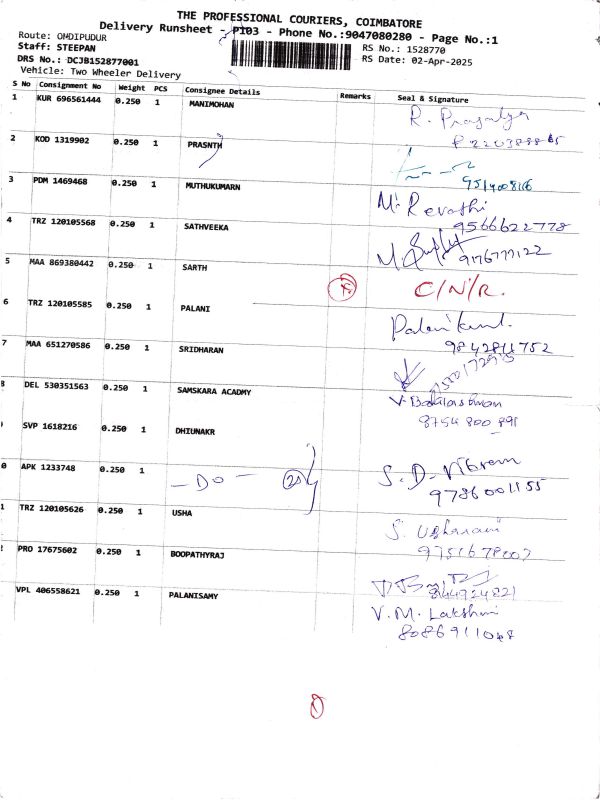 THE PROFESSIONAL COURIERS, COIMBATORE
Delivery Runsheet - P103 - Phone No.:9047080280 - Page No.:1
Route: ONDIPUDUR
Staff: STEEPAN
RS No.: 1528770
DRS No.: DCJB152877001
RS Date: 02-Apr-2025
Vehicle: Two Wheeler Delivery
S No Consignment No Weight PCS Consignee Details Remarks Seal & Signature
1 KUR 696561444 0.250 1 MANIMOHAN R.
2 KOD 1319902 0.250 1 PRASNTH
3 PDM 1469468 0.250 1 MUTHUKUMARN M. Revathi
9566622778
4 TRZ 120105568 0.250 1 SATHVEEKA
9176777122
5 MAA 869380442 0.250 1 SARTH C/N/R.
6 TRZ 120105585 0.250 1 PALANI
9842811752
7 MAA 651270586 0.250 1 SRIDHARAN
8 DEL 530351563 0.250 1 SAMSKARA ACADMY V.
8754800891
SVP 1618216 0.250 1 DHIUNAKR
0 APK 1233748 0.250 1 - DO - S. D. Vikram
9786001155
1 TRZ 120105626 0.250 1 USHA S. Usharani
9751678007
2 PRO 17675602 0.250 1 BOOPATHYRAJ
8144924821
VPL 406558621 0.250 1 PALANISAMY V. M. Lakshmi
8086911048